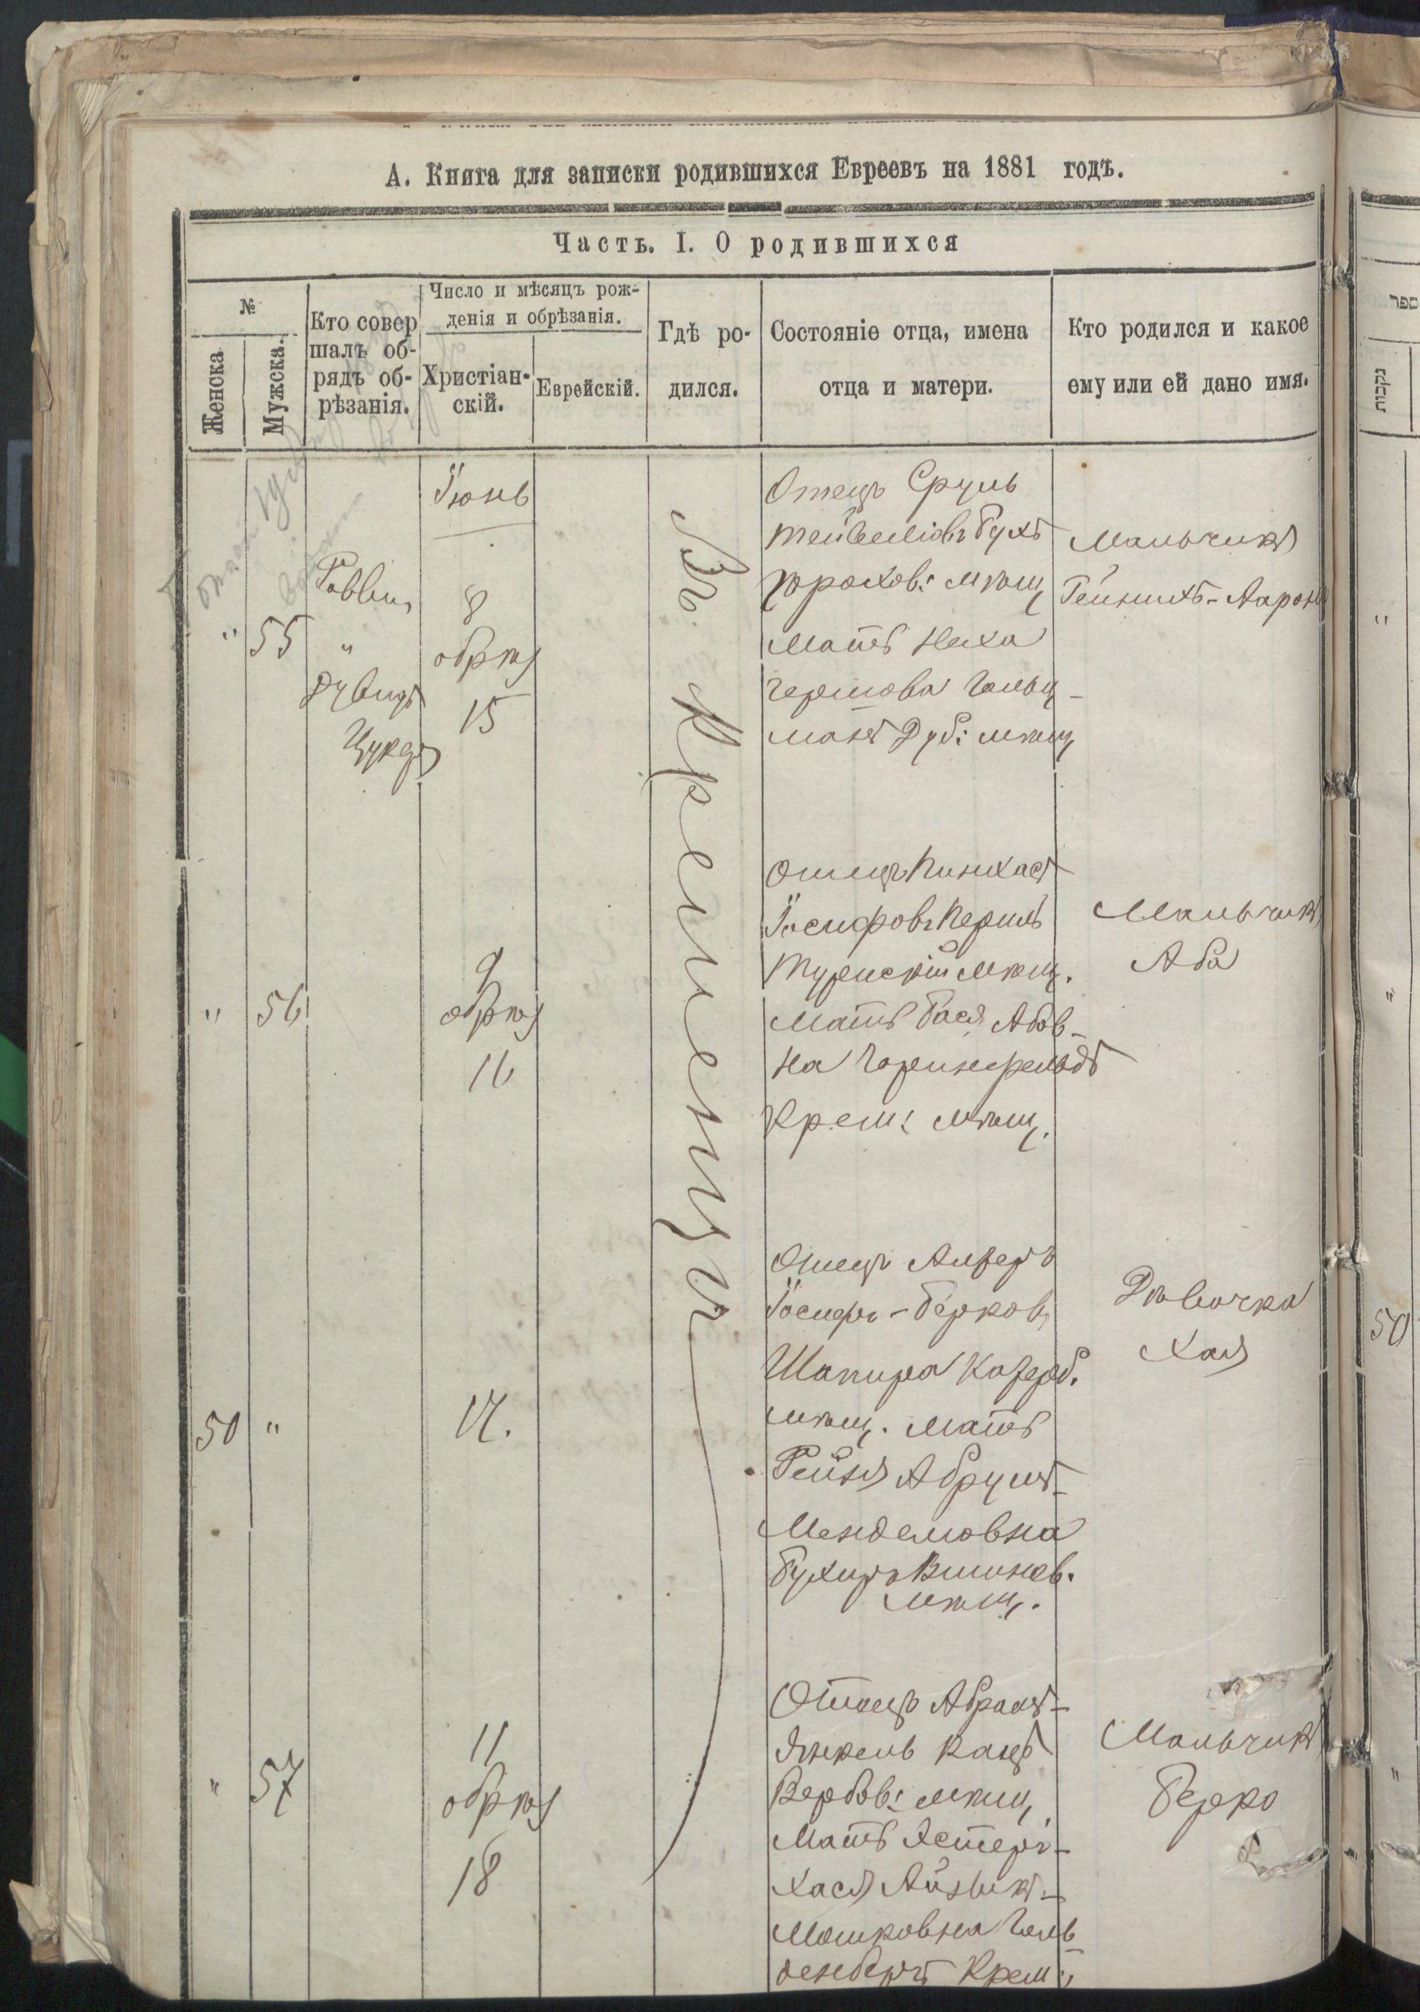 А. Книга для записки родившихся Евреевъ на 1881 годъ.
Часть. I. О родившихся
№
Женска
Мужска.
Кто совер
шалъ об-
рядъ об-
рѣзанія.
Число и мѣсяцъ рож-
денія и обрѣзанія.
Христіан-
скій.
Еврейскій.
Гдѣ ро-
дился.
Состояніе отца, имена
отца и матери.
Кто родился и какое
ему или ей дано имя.
Въ Кременцѣ
Іюнь
"
55
Раввин
"
Дувидъ
Цукер
8
обрѣз
15
Отецъ Сруль
Тейвеліовъ Бухъ
Горохов: мѣщ
Мать Неха
Гершова Гольц-
манъ Дуб: мѣщ
Мальчикъ
Гейнихъ-Ааронъ
"
56
9
обрѣз
16
Отецъ Пинхасъ
Іосифовъ Перилъ
Турискій мѣщ.
Мать Бася Абов-
на Горинфельдъ
Крем: мѣщ.
Мальчикъ
Аба
50
"
17.
Отецъ Алтеръ
Іосифъ-Берков
Шапира
мѣщ. Мать
Рейзя Абрумъ-
Менделовна
Бухиръ Вишнев.
мѣщ.
Дѣвочка
Хая
"
57
11
обрѣз
18
Отецъ Абрамъ-
Янкель Кацъ
Вербов: мѣщ
Мать Эстеръ-
Хася Айзикъ-
Мошковна Голь
денбергъ Крем:
Мальчикъ
Берко
ספר
נקבות
"
"
50
"